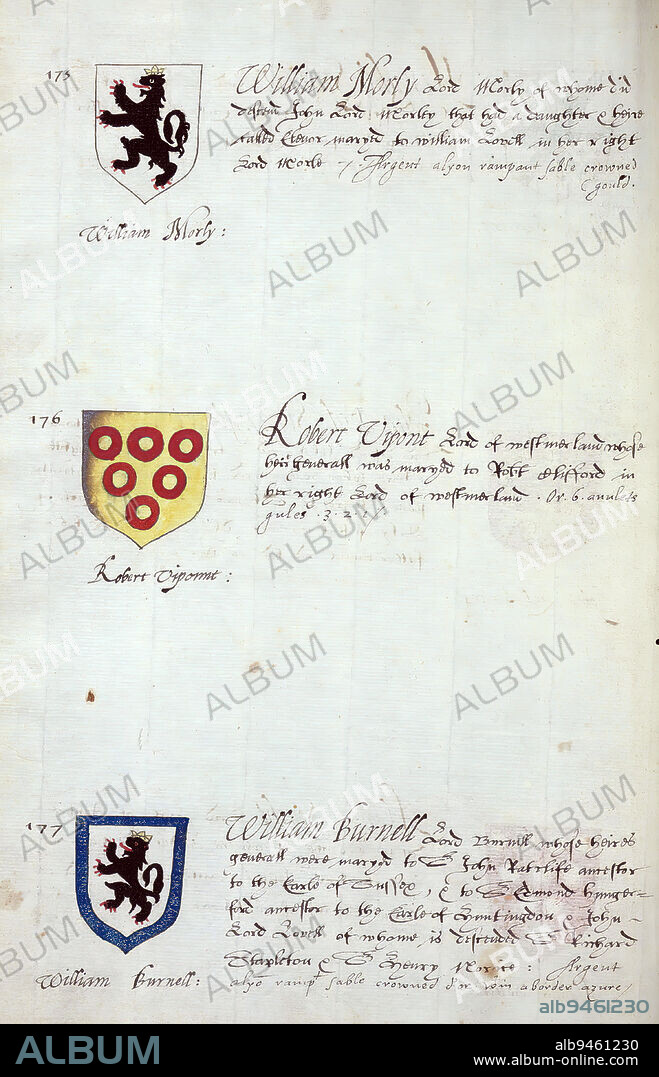 175
William Morly Lord Morly of whome did
descend John Lord Morley that had a daughter & heire
called Elenor maryed to William Lovell in her right
Lord Morle Argent a lyon rampant sable crowned
gould.
William Morly:
176
Robert Vipont Lord of westmerland whose
heir generall was maryed to Robt Clifford in
her right Lord of westmerland. Or. 6. anulets
gules. 3. 2.
Robert Viponnt:
177
William Burnell Lord Burnell whose heires
generall were maryd to Sr John Ratclife ancestor
to the Earle of Sussex, & to Sr Edmond Hunger-
ford ancestor to the Earle of Huntingdon & John
Lord Lovell of whome is descended Sr Richard
Stapleton & Sr Henry : Argent
a lyo rampt sable crowned d'or a border azure
William Burnell:
ALBUM
alb9461230
ALBUM
alb9461230
www.album-online.com